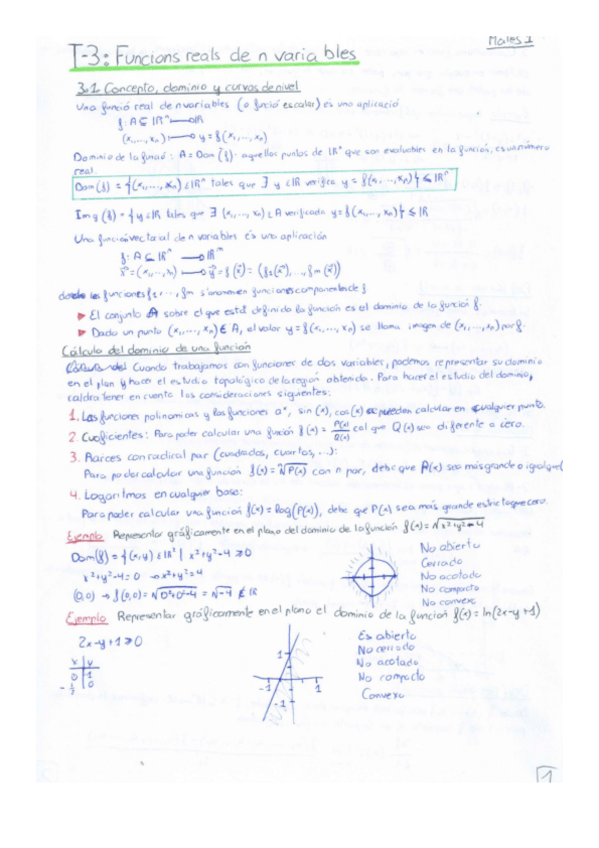 Mates 1
T-3: Funcions reals de n variables
3.1 Concepto, dominio y curvas de nivel
Una funció real de n variables (o funció escalar) és una aplicació
f: A ⊆ ℝⁿ → ℝ
(x₁, ..., xₙ) → y = f(x₁, ..., xₙ)
Dominio de la funció: A = Dom(f): aquellos puntos de ℝⁿ que son evaluables en la función, es un número
real.
Dom(f) = {(x₁, ..., xₙ) ∈ ℝⁿ tales que ∃ y ∈ ℝ verifica y = f(x₁, ..., xₙ)} ⊆ ℝⁿ
Img(f) = {y ∈ ℝ tales que ∃ (x₁, ..., xₙ) ∈ A verificado y = f(x₁, ..., xₙ)} ⊆ ℝ
Una función vectorial de n variables és una aplicación
f: A ⊆ ℝⁿ → ℝᵐ
x⃗ = (x₁, ..., xₙ) → y⃗ = f(x⃗) = (f₁(x⃗), ..., fm(x⃗))
donde las funciones f₁, ..., fm s'anomenen funciones componentes de f
► El conjunto A sobre el que está definido la función es el dominio de la funció f.
► Dado un punto (x₁, ..., xₙ) ∈ A, el valor y = f(x₁, ..., xₙ) se llama imagen de (x₁, ..., xₙ) por f.
Cálculo del dominio de una función
Cuando trabajamos con funciones de dos variables, podemos representar su dominio
en el plan y hacer el estudio topológico de la región obtenida. Para hacer el estudio del dominio,
caldrá tener en cuenta las consideraciones siguientes:
1. Las funciones polinomicas y las funciones aˣ, sin(x), cos(x) se pueden calcular en cualquier punto.
2. Cuoficientes: Para poder calcular una función f(x) = P(x)/Q(x) cal que Q(x) sea diferente a cero.
3. Raices con radical par (cuadradas, cuartas, ...):
Para poder calcular una función f(x) = ⁿ√P(x) con n par, debe que P(x) sea más grande o igual que
4. Logaritmos en cualquier base:
Para poder calcular una función f(x) = log(P(x)), debe que P(x) sea más grande estricto que cero.
Ejemplo Representar gráficamente en el plano del dominio de la función f(x) = √x²+y²-4
Dom(f) = {(x,y) ∈ ℝ² | x²+y²-4 ≥ 0
x²+y²-4=0 → x²+y²=4
(0,0) → f(0,0) = √0²+0²-4 = √-4 ∉ ℝ
No abierto
Cerrado
No acotado
No compacto
No convexo
Ejemplo Representar gráficamente en el plano el dominio de la función f(x) = ln(2x-y+1)
2x-y+1>0
x y
0 1
-1/2 0
1
-1 1
-1
Es abierto
No cerrado
No acotado
No compacto
Convexo
1